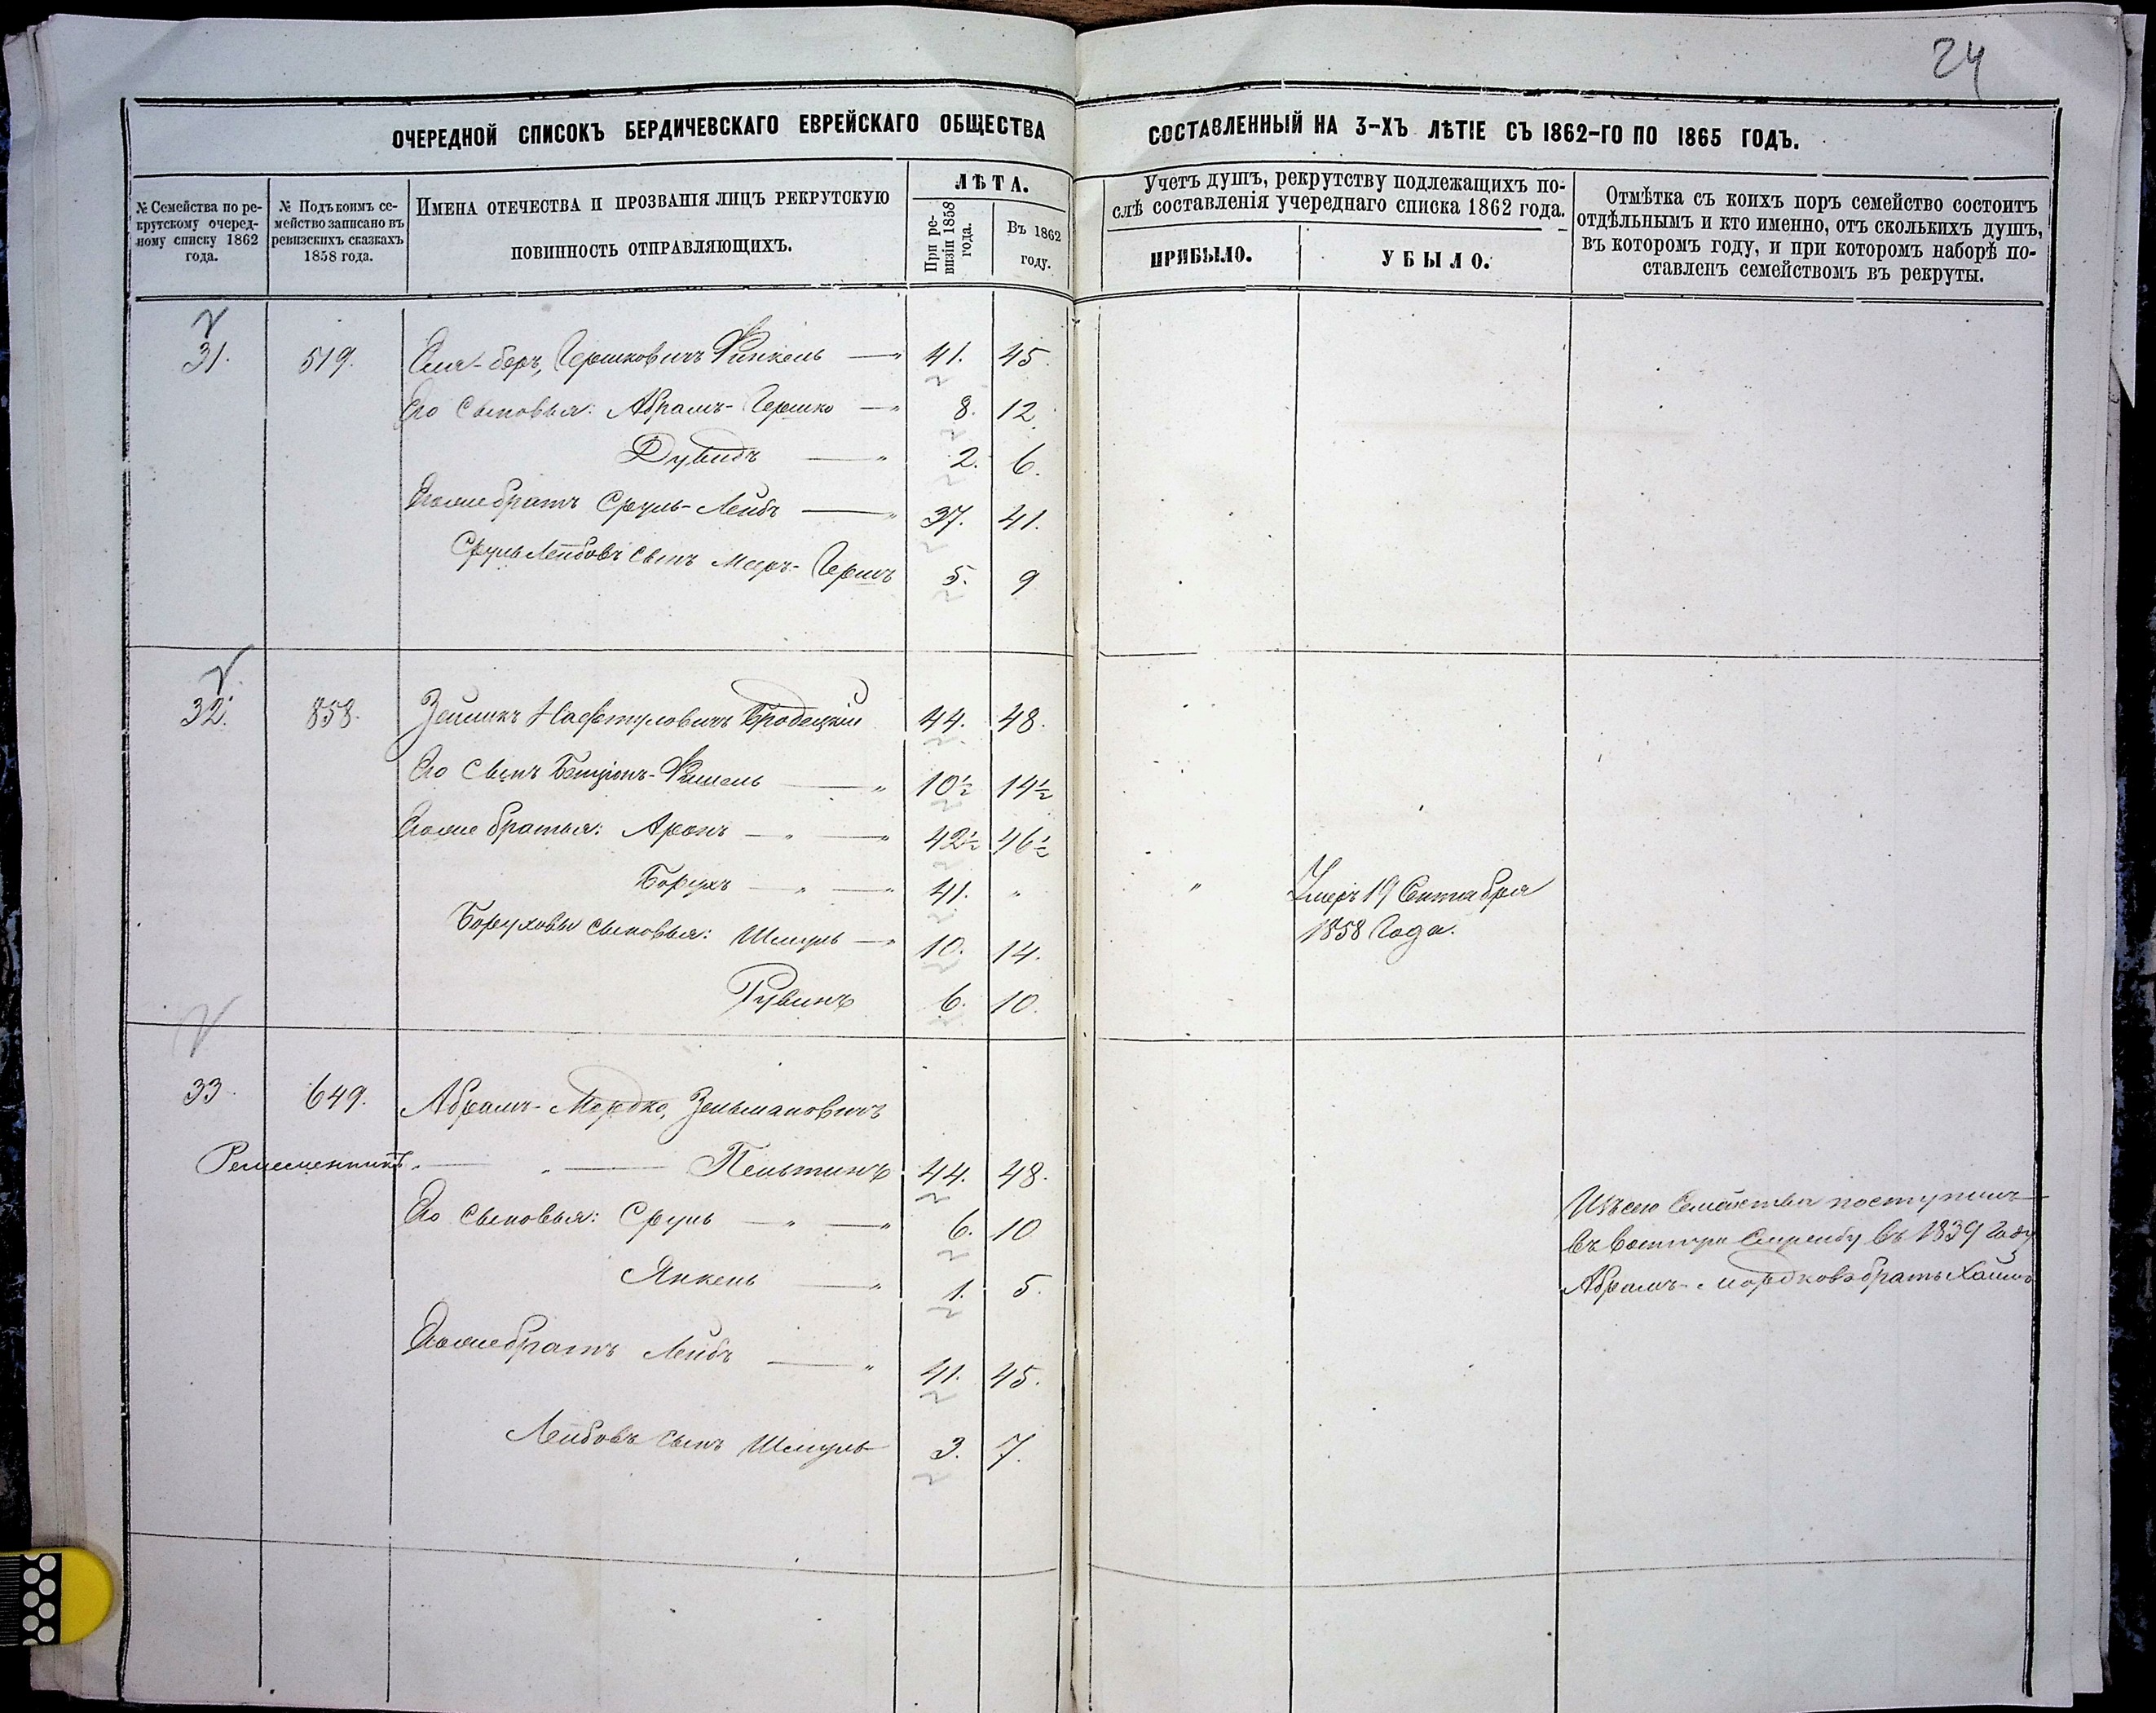 24
ОЧЕРЕДНОЙ СПИСОКЪ БЕРДИЧЕВСКАГО ЕВРЕЙСКАГО ОБЩЕСТВА СОСТАВЛЕННЫЙ НА 3-ХЪ ЛѢТІЕ СЪ 1862-ГО ПО 1865 ГОДЪ.
№ Семейства по ре-
крутскому очеред-
ному списку 1862
года.
№ Подъ коимъ се-
мейство записано въ
ревизскихъ сказкахъ
1858 года.
ИМЕНА ОТЕЧЕСТВА И ПРОЗВАНІЯ ЛИЦЪ РЕКРУТСКУЮ
ПОВИННОСТЬ ОТПРАВЛЯЮЩИХЪ.
ЛѢТА.
При ре-
визіи 1858
года.
Въ 1862
году.
Учетъ душъ, рекрутству подлежащихъ по-
слѣ составленія учереднаго списка 1862 года.
ПРИБЫЛО.
УБЫЛО.
Отмѣтка съ коихъ поръ семейство состоитъ
отдѣльнымъ и кто именно, отъ сколькихъ душъ,
въ которомъ году, и при которомъ наборѣ по-
ставленъ семействомъ въ рекруты.
31. 519. Еля-беръ, Гершковичъ Финкель — " 41. 45.
Его Сыновья: Абрамъ-Гершко — " 8. 12.
Дувидъ — " 2. 6.
Егоже братъ Сруль-Лейбъ — " 37. 41.
Сруль Лейбовъ сынъ Мееръ-Гершъ 5. 9
32. 858. Зейликъ Нафтуловичъ Бродецкій 44. 48.
Его Сынъ Бенціонъ-Фишель — " 10½ 14½
Егоже братья: Аронъ — " — " 42½ 46½
Борухъ — " — " 41. " " Умеръ 19 Сентября
1858 Года.
Боруховы сыновья: Шмуль — " 10. 14.
Рувинъ 6. 10.
33. 649. Абрамъ-Мордко, Зельмановичъ
Ремесленникъ. — " — Пельтинъ 44. 48.
Его Сыновья: Сруль — " — " 6. 10
Янкель — " 1. 5.
Изъ сего Семейства поступилъ
въ 1839 Году
Абрамъ-Мордковъ братъ Хаимъ
Егоже братъ Лейбъ — " 41. 45.
Лейбовъ сынъ Шмуль 3. 7.